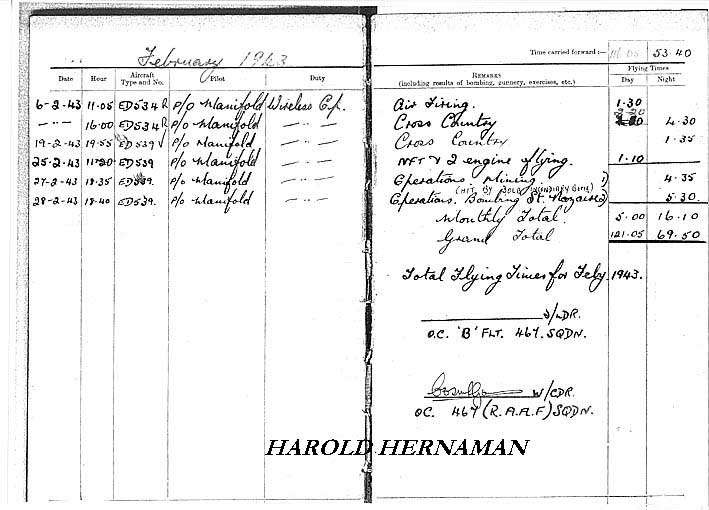 February 1943
Time carried forward :— 116.05 53.40
Flying Times
Date Hour Aircraft Type and No. Pilot Duty Remarks (including results of bombing, gunnery, exercises, etc.) Day Night
6-2-43 11.05 ED534 R P/O Manifold Wireless Op. Air Firing. 1.30
— " — 16.00 ED534 R P/O Manifold — " — Cross Country 2.20 4.30
19-2-43 19.55 ED539 P/O Manifold — " — Cross Country 1.35
25-2-43 11.20 ED539 P/O Manifold — " — NFT & 2 engine flying. 1.10
27-2-43 18.35 ED539. P/O Manifold — " — Operations Mining. 1) 4.35
(HIT BY 30LB INCENDIARY BOMB)
28-2-43 18.40 ED539. P/O Manifold — " — Operations. Bombing St. Nazaire 2) 5.30
Monthly Total. 5.00 16.10
Grand Total 121.05 69.50
Total Flying Times for Feby. 1943.
S/LDR.
O.C. 'B' FLT. 467. SQDN.
W/CDR.
OC. 467 (R.A.A.F) SQDN.
HAROLD HERNAMAN